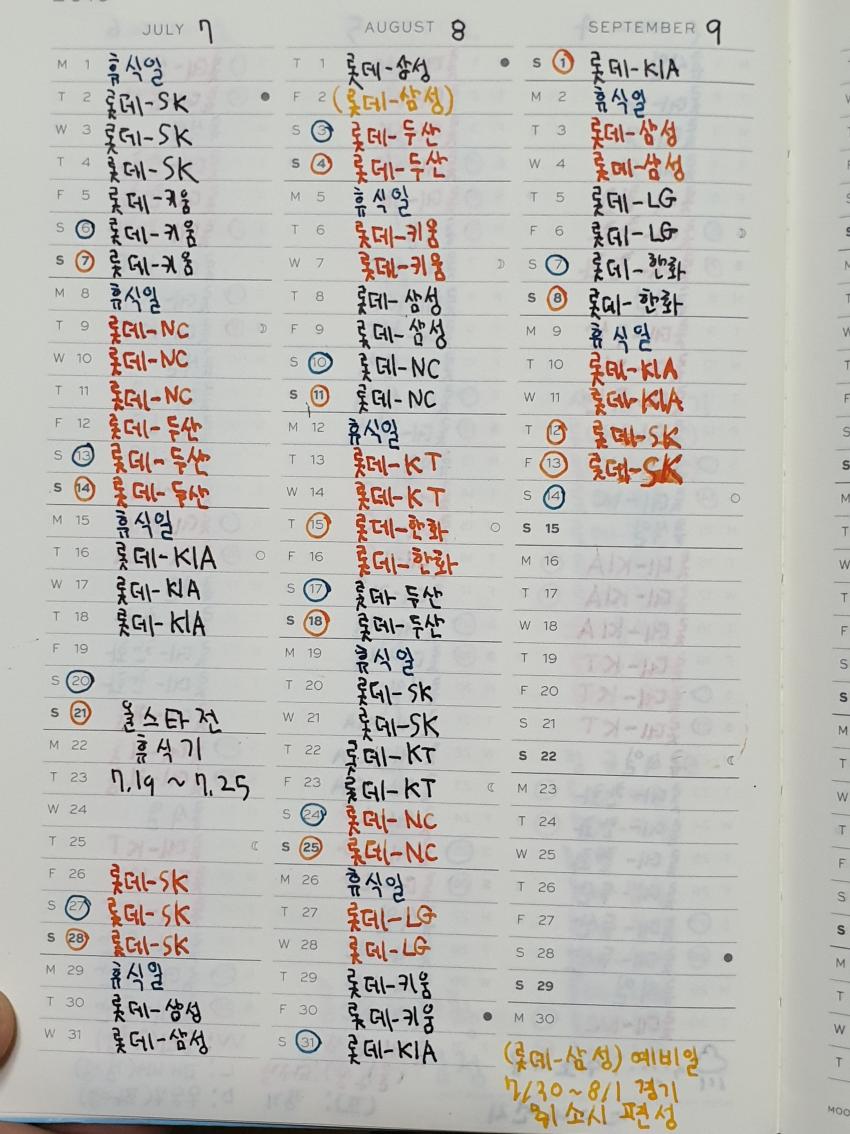 JULY 7
M 1 휴식일
T 2 롯데-SK
W 3 롯데-SK
T 4 롯데-SK
F 5 롯데-키움
S 6 롯데-키움
S 7 롯데-키움
M 8 휴식일
T 9 롯데-NC
W 10 롯데-NC
T 11 롯데-NC
F 12 롯데-두산
S 13 롯데-두산
S 14 롯데-두산
M 15 휴식일
T 16 롯데-KIA
W 17 롯데-KIA
T 18 롯데-KIA
F 19
S 20
S 21 올스타전
M 22 휴식기
T 23 7.19 ~ 7.25
W 24
T 25
F 26 롯데-SK
S 27 롯데-SK
S 28 롯데-SK
M 29 휴식일
T 30 롯데-삼성
W 31 롯데-삼성
AUGUST 8
T 1 롯데-삼성
F 2 (롯데-삼성)
S 3 롯데-두산
S 4 롯데-두산
M 5 휴식일
T 6 롯데-키움
W 7 롯데-키움
T 8 롯데-삼성
F 9 롯데-삼성
S 10 롯데-NC
S 11 롯데-NC
M 12 휴식일
T 13 롯데-KT
W 14 롯데-KT
T 15 롯데-한화
F 16 롯데-한화
S 17 롯데-두산
S 18 롯데-두산
M 19 휴식일
T 20 롯데-SK
W 21 롯데-SK
T 22 롯데-KT
F 23 롯데-KT
S 24 롯데-NC
S 25 롯데-NC
M 26 휴식일
T 27 롯데-LG
W 28 롯데-LG
T 29 롯데-키움
F 30 롯데-키움
S 31 롯데-KIA
SEPTEMBER 9
S 1 롯데-KIA
M 2 휴식일
T 3 롯데-삼성
W 4 롯데-삼성
T 5 롯데-LG
F 6 롯데-LG
S 7 롯데-한화
S 8 롯데-한화
M 9 휴식일
T 10 롯데-KIA
W 11 롯데-KIA
T 12 롯데-SK
F 13 롯데-SK
S 14
S 15
M 16
T 17
W 18
T 19
F 20
S 21
S 22
M 23
T 24
W 25
T 26
F 27
S 28
S 29
M 30
(롯데-삼성) 예비일
7/30~8/1 경기
취소시 편성